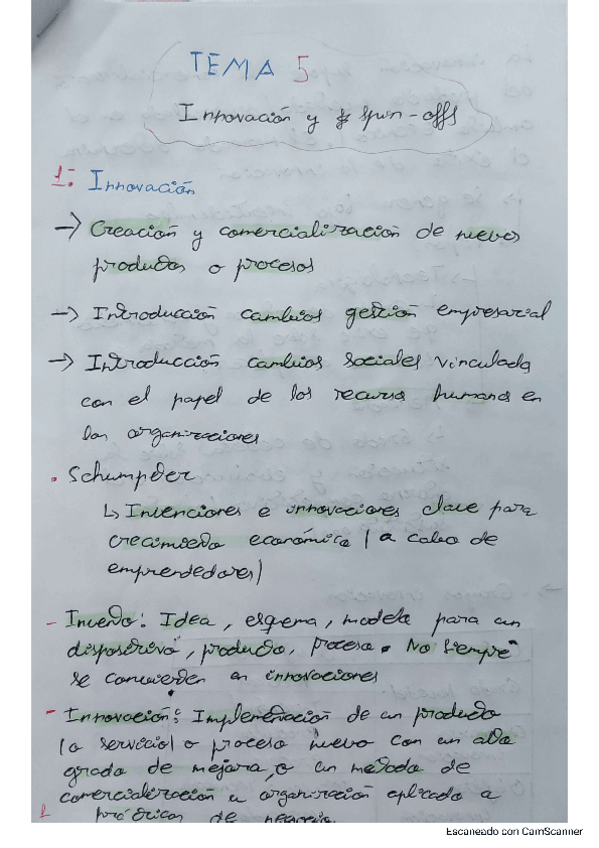 TEMA 5
Innovación y spin-offs
1: Innovación
→ Creación y comercialización de nuevos
productos o procesos
→ Introducción cambios gestión empresarial
→ Introducción cambios sociales vinculada
con el papel de los recursos humanos en
las organizaciones
• Schumpder
↳ Invenciones e innovaciones clave para
crecimiento económico (a cabo de
emprendedores)
- Invento: Idea, esquema, modelo para un
dispositivo, producto, proceso. No siempre
se convierten en innovaciones
- Innovación: Implementación de un producto
(o servicio) o proceso nuevo con un alto
grado de mejora, o un método de
comercialización u organización aplicado a
prácticas de negocio.
Escaneado con CamScanner